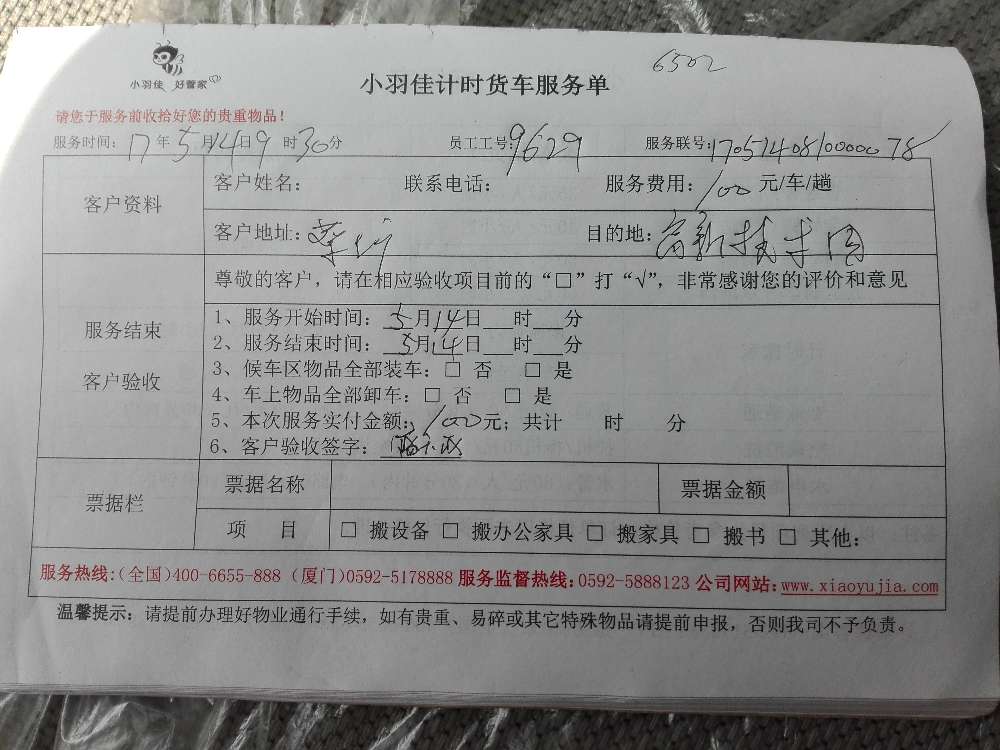 6502
小羽佳 好管家
小羽佳计时货车服务单
请您于服务前收拾好您的贵重物品！
服务时间：17年5月14日9时30分 员工工号：9629 服务联号：170514081000078
客户资料
客户姓名： 联系电话： 服务费用：100元/车/趟
客户地址：蔡 目的地：高新技术园
服务结束
客户验收
尊敬的客户，请在相应验收项目前的“□”打“√”，非常感谢您的评价和意见
1、服务开始时间：5月14日__时__分
2、服务结束时间：5月14日__时__分
3、候车区物品全部装车：□ 否 □ 是
4、车上物品全部卸车：□ 否 □ 是
5、本次服务实付金额：100元；共计 时 分
6、客户验收签字：
票据栏
票据名称 票据金额
项 目 □ 搬设备 □ 搬办公家具 □ 搬家具 □ 搬书 □ 其他：
服务热线：（全国）400-6655-888（厦门）0592-5178888 服务监督热线：0592-5888123 公司网站：www.xiaoyujia.com
温馨提示：请提前办理好物业通行手续，如有贵重、易碎或其它特殊物品请提前申报，否则我司不予负责。